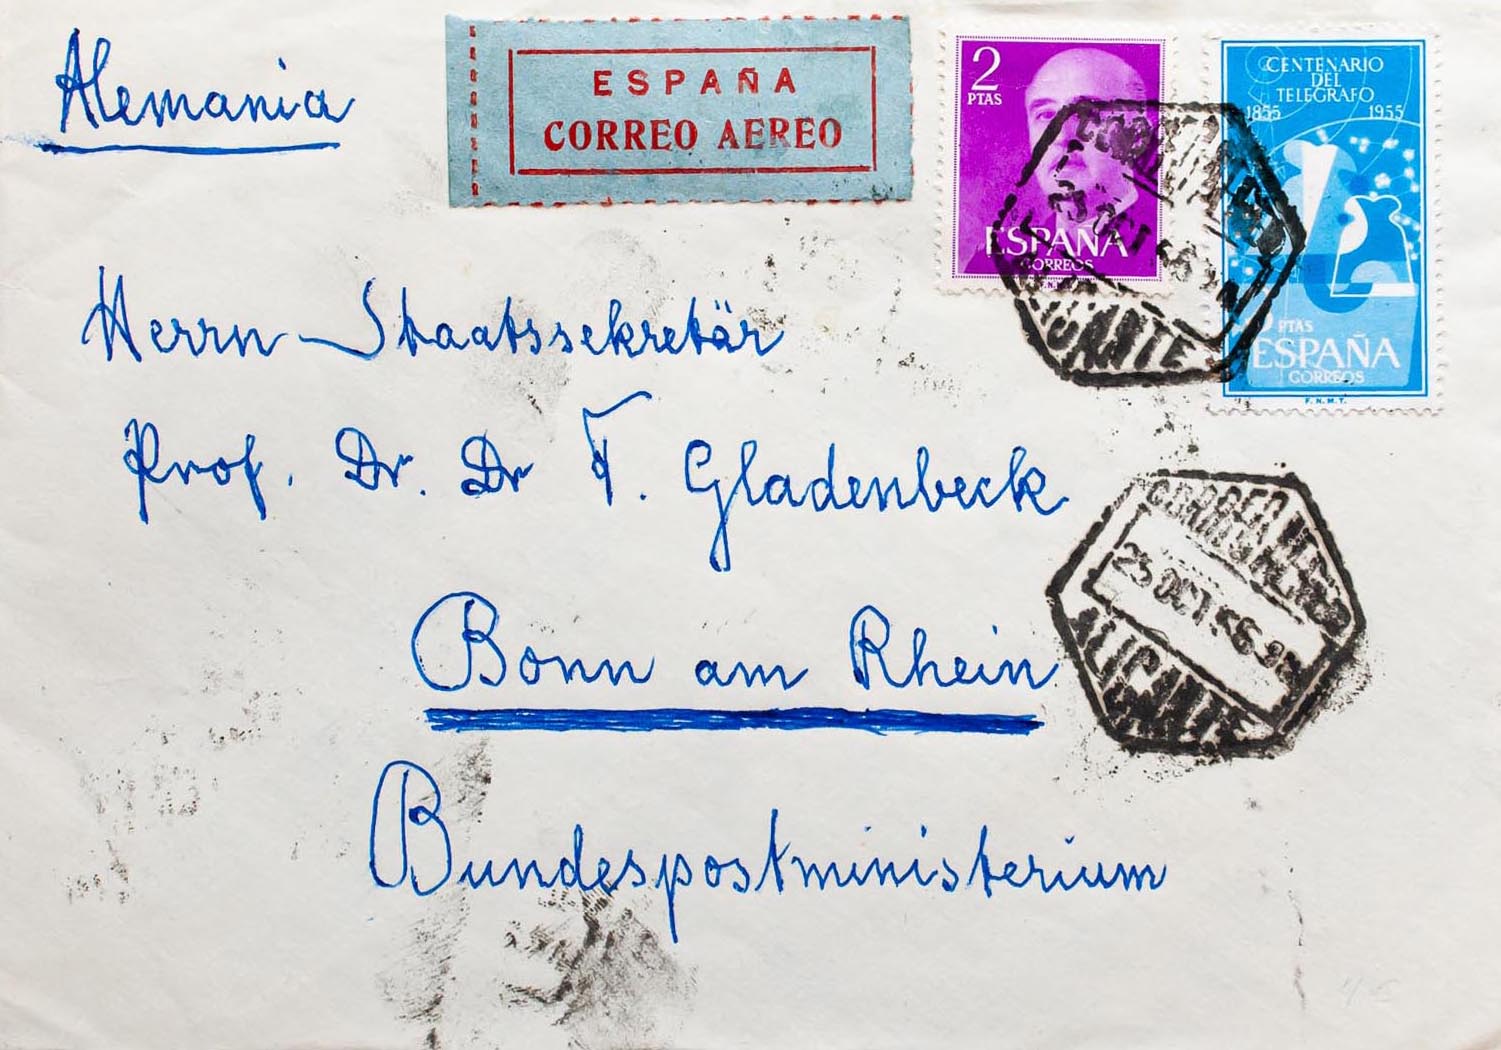 Alemania
ESPAÑA
CORREO AEREO
2
PTAS
ESPAÑA
CORREOS
CENTENARIO
DEL
TELEGRAFO
1855 1955
PTAS
ESPAÑA
CORREOS
F.N.M.T.
ALICANTE
Herrn Staatssekretär
Prof. Dr. Dr F. Gladenbeck
Bonn am Rhein
Bundespostministerium
CORREO
25 OCT 56
ALICANTE